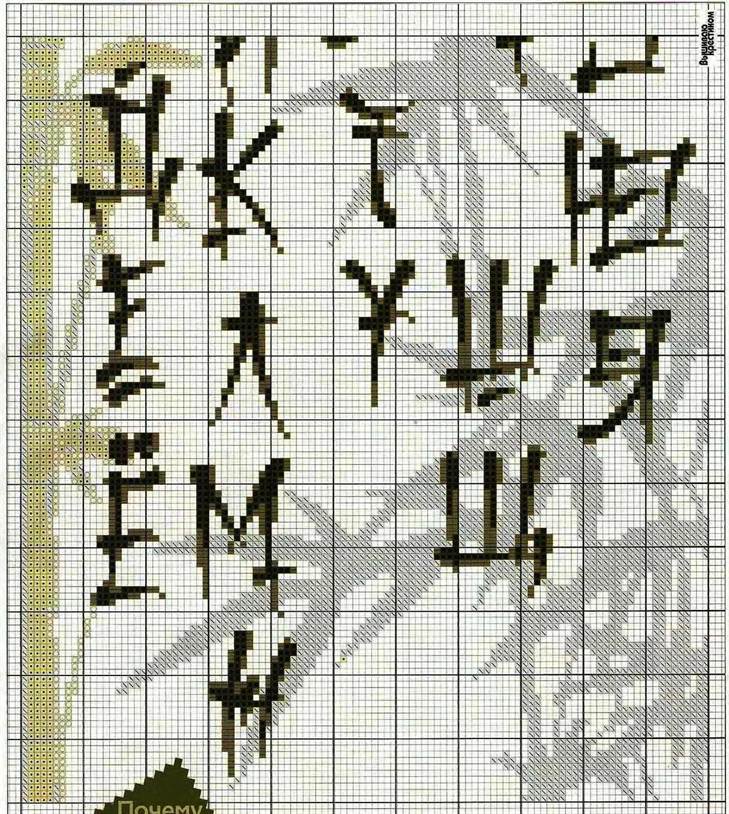 Вышиваю
крестиком
Д К Т Ю
Е Л У Ш Я
Ё М Щ
Н
Почему